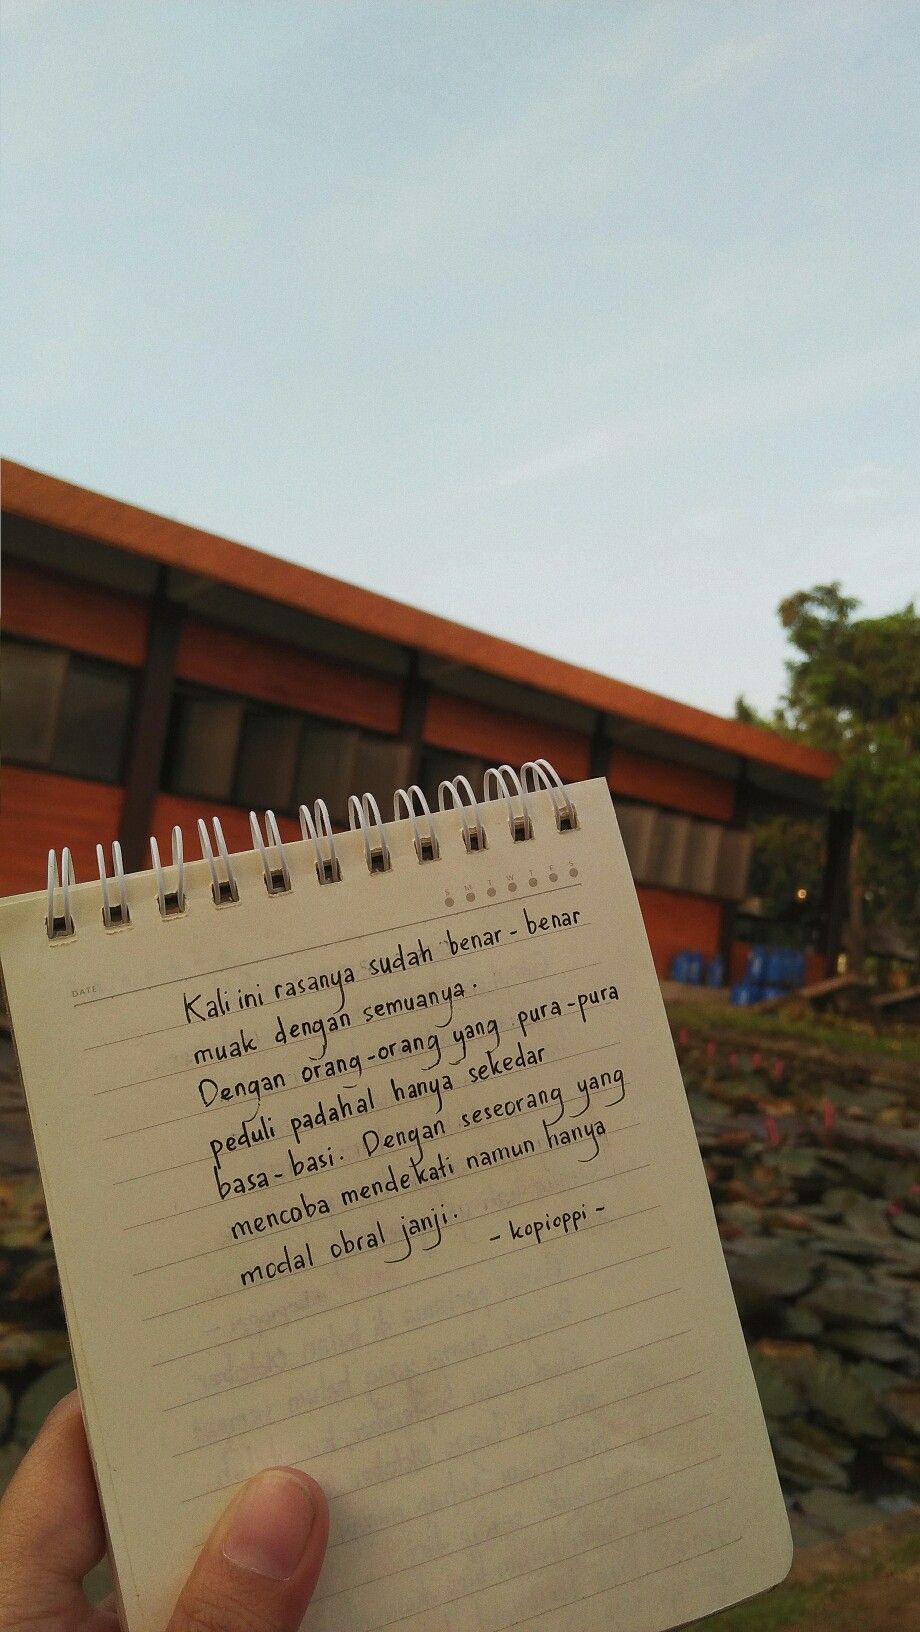 S M T W T F S
DATE
Kali ini rasanya sudah benar-benar
muak dengan semuanya.
Dengan orang-orang yang pura-pura
peduli padahal hanya sekedar
basa-basi. Dengan seseorang yang
mencoba mendekati namun hanya
modal obral janji.
- kopioppi -